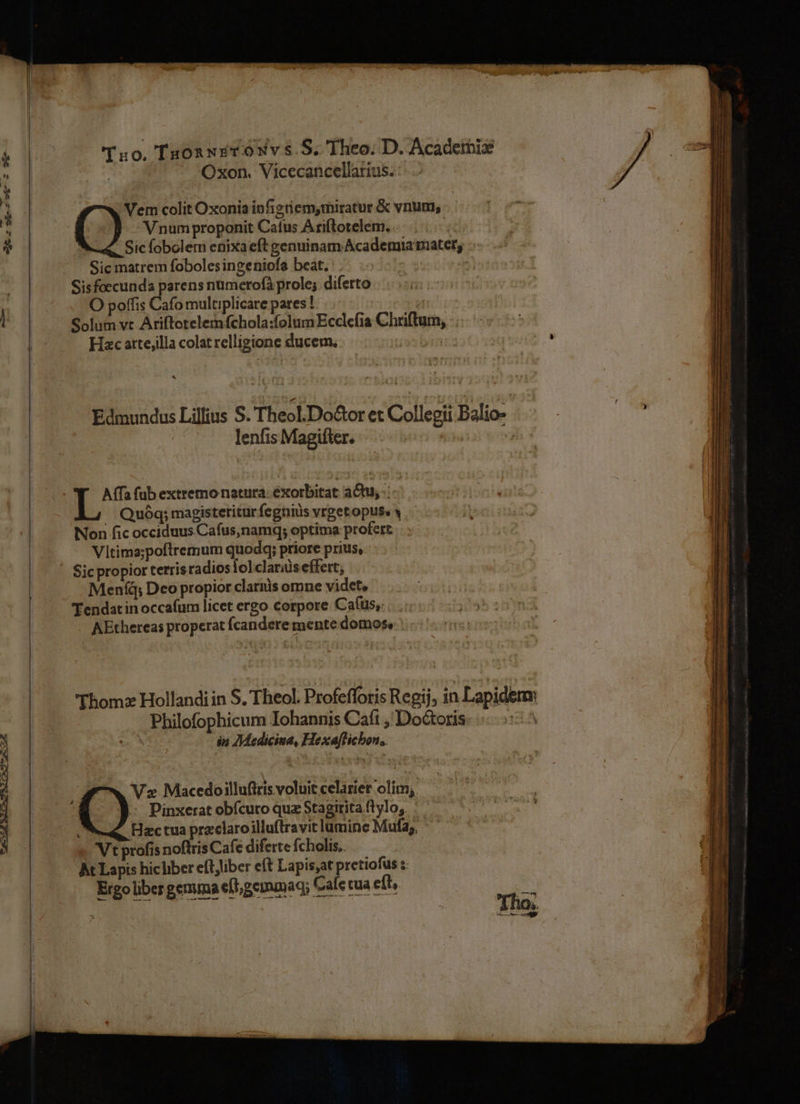 Tho. Thornetonvs S. Theo. D. Academiæ
Oxon. Vicecancellarius.
QVem colit Oxonia insigniem, miratur & vnum,
Vnum proponit Casus Aristotelem.
Sic sobolem enixa est genuinam Academia mater,
Sic matrem soboles ingeniosa beat.
Sis fœcunda parens numerosâ prole; diserto
O possis Caso multiplicare pares!
Solum vt Aristotelem schola: solum Ecclesia Christum,
Hæc arte, illa colat relligione ducem.
Edmundus Lillius S. Theol. Doctor et Collegii Balio-
lensis Magister.
LAssa sub extremo natura exorbitat actu,
Quóq; magis teritur segniùs vrget opus.
Non sic occiduus Casus, namq; optima profert
Vltima; postremum quodq; priore prius,
Sic propior terris radios sol clariùs effert,
Mensq; Deo propior clariùs omne videt.
Tendat in occasum licet ergo corpore Casus,
AEthereas properat scandere mente domos.
Thomæ Hollandi in S. Theol. Professoris Regij, in Lapidem
Philosophicum Iohannis Casi, Doctoris
in Medicina, Hexastichon.
QVæ Macedo illustris voluit celarier olim,
Pinxerat obscuro quæ Stagirita stylo,
Hæc tua præclaro illustravit lumine Musa,
Vt prosis nostris Case diserte scholis.
At Lapis hic liber est, liber est Lapis, at pretiosus:
Ergo liber gemma est, gemmaq; Case tua est.
Tho.